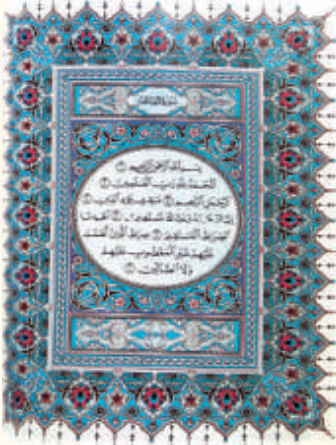 سورة الفاتحة
بسم الله الرحمن الرحيم ①
الحمد لله رب العالمين ②
الرحمن الرحيم ③ ملك يوم الدين ④
إياك نعبد وإياك نستعين ⑤ اهدنا
الصراط المستقيم ⑥ صراط الذين أنعمت
عليهم غير المغضوب عليهم
ولا الضالين ⑦